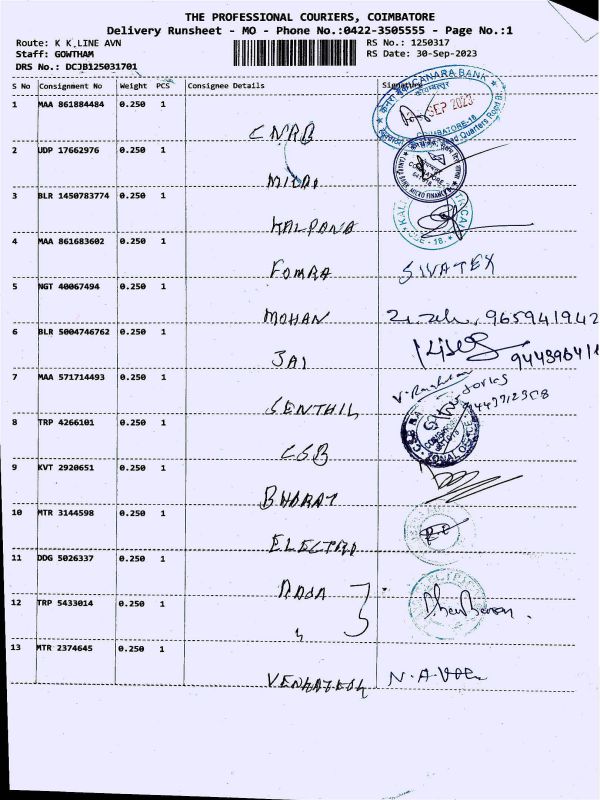 THE PROFESSIONAL COURIERS, COIMBATORE
Delivery Runsheet - MO - Phone No.:0422-3505555 - Page No.:1
Route: K K,LINE AVN
RS No.: 1250317
Staff: GOWTHAM
RS Date: 30-Sep-2023
DRS No.: DCJB125031701
S No Consignment No Weight PCS Consignee Details Signature
1 MAA 861884484 0.250 1
CANARA BANK
SEP 2023
COIMBATORE-18
CNRB
2 UDP 17662976 0.250 1
3 BLR 1450783774 0.250 1
KALPANA
CBE - 18.
4 MAA 861683602 0.250 1
FOMRA SIVATEX
5 NGT 40067494 0.250 1
MOHAN
6 BLR 5004746762 0.250 1
JAI
7 MAA 571714493 0.250 1
SENTHIL
8 TRP 4266101 0.250 1
CSB
9 KVT 2920651 0.250 1
BHARAT
10 MTR 3144598 0.250 1
ELECTRO
11 DDG 5026337 0.250 1
12 TRP 5433014 0.250 1
"
13 MTR 2374645 0.250 1
N.A.